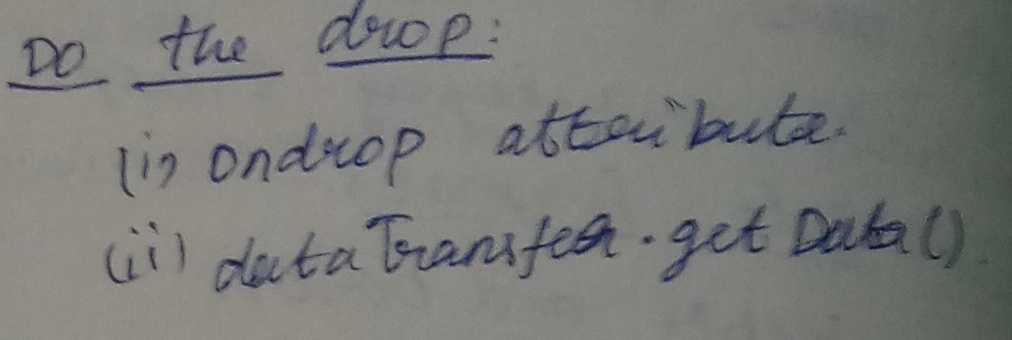 DO the drop:
(i) ondrop attribute.
(ii) dataTransfer.getData()